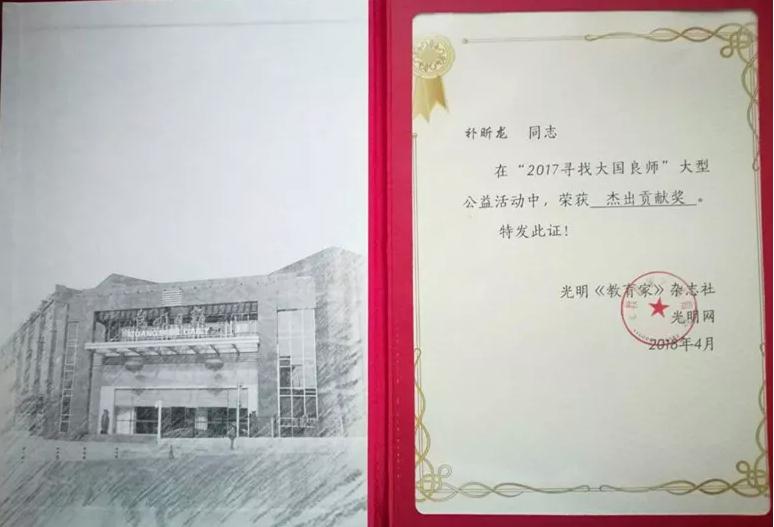 GUANGMING DAILY
补昕龙 同志
在“2017寻找大国良师”大型
公益活动中，荣获 杰出贡献奖 。
特发此证！
光明《教育家》杂志社
光明网
2018年4月